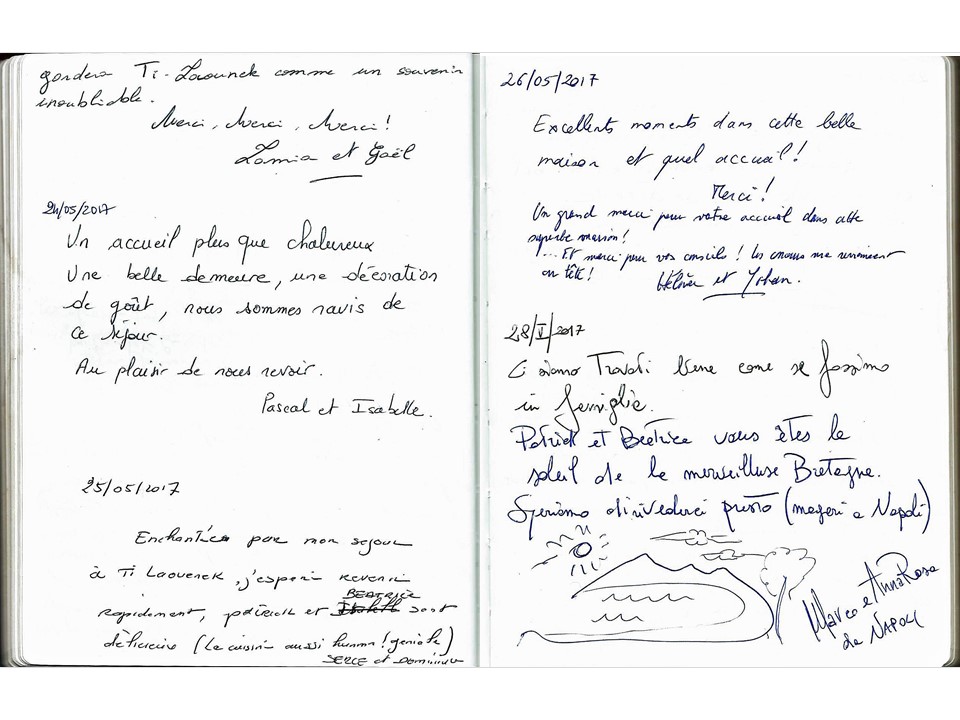 gardera Ti-Laouenek comme un souvenir
inoubliable.
Merci, Merci, Merci!
Lamia et Gaël
24/05/2017
Un accueil plus que chaleureux
Une belle demeure, une décoration
de goût, nous sommes ravis de
ce séjour.
Au plaisir de nous revoir.
Pascal et Isabelle.
25/05/2017
Enchantée par mon séjour
à Ti Laouenek, j'espere revenir
BEATRICE
rapidement, patrick et sont
délicieux (La cuisine aussi hummm! géniale)
SERGE et Dominique
26/05/2017
Excellents moments dans cette belle
maison et quel accueil!
Merci!
Un grand merci pour votre accueil dans cette
superbe maison!
... Et merci pour vos conseils! Les me reviennent
en tête!
Hélène et Yohan.
28/V/2017
Ci siamo Trovati bene come se fossimo
in famiglia.
Patrick et Béatrice vous êtes le
soleil de la merveilleuse Bretagne.
Speriamo di rivederci presto (magari a Napoli)
Marco e AnnaRosa
da NAPOLI